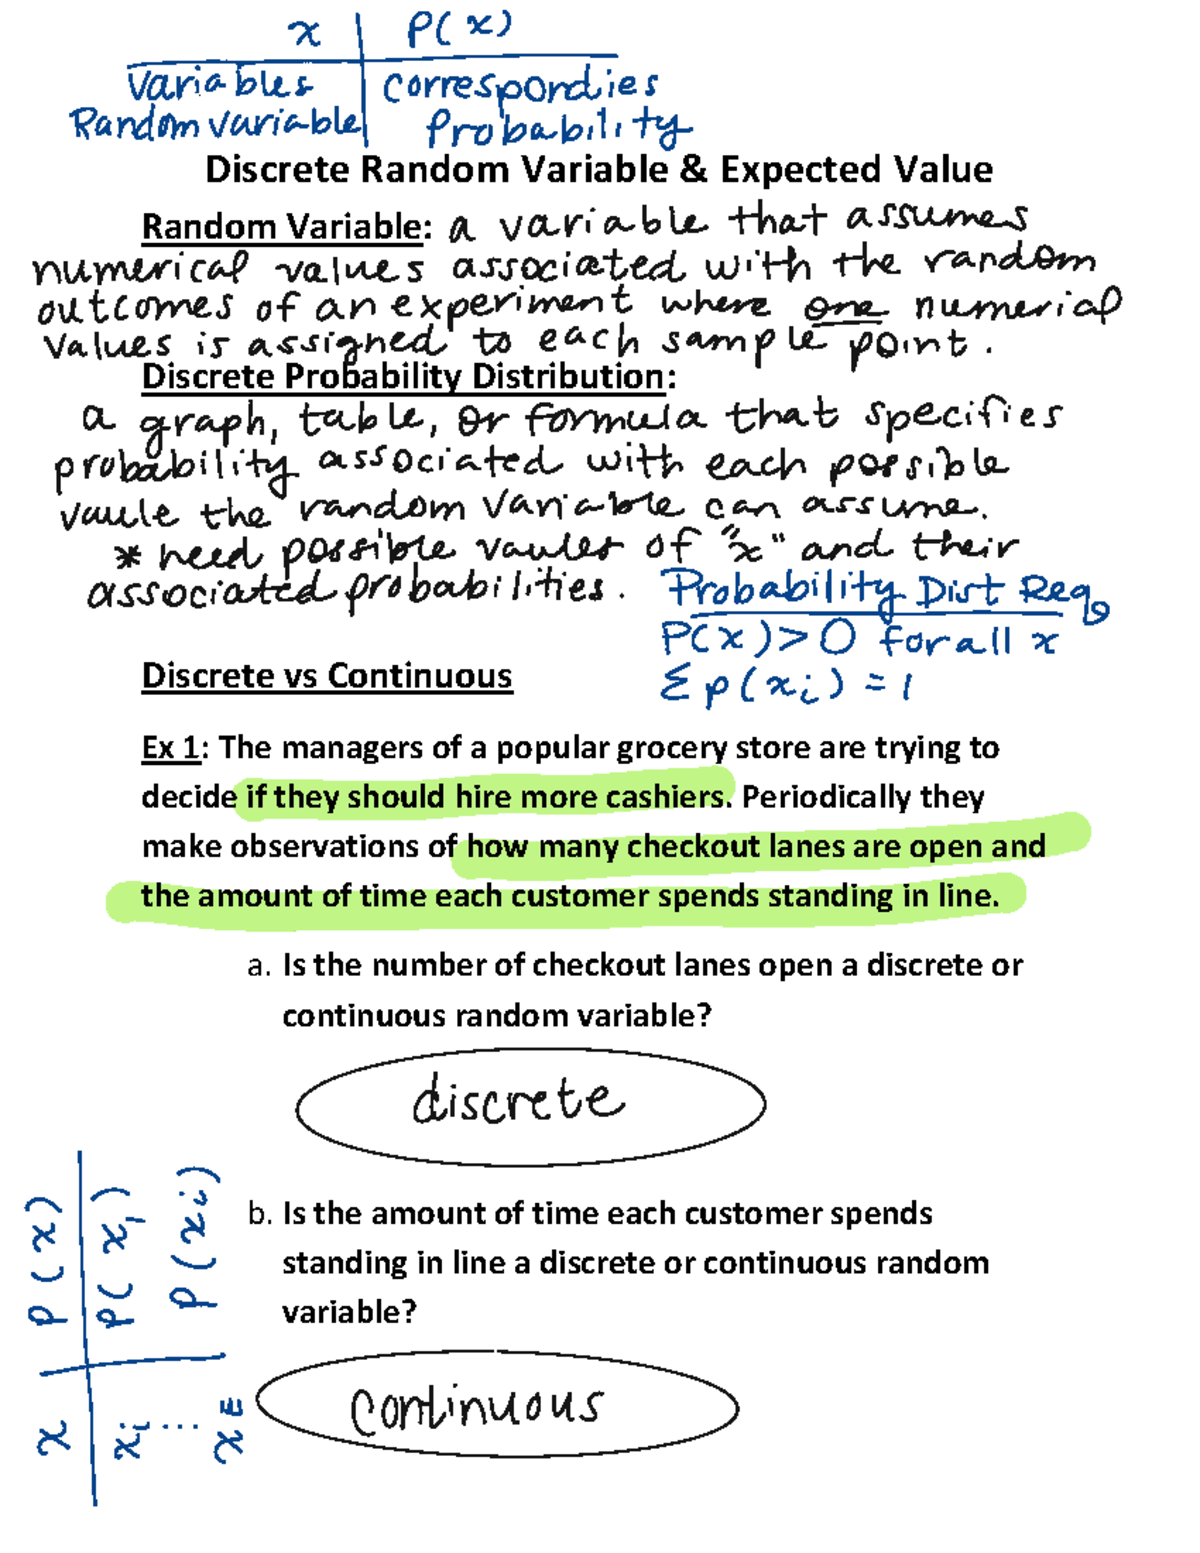 x | P(x)
Variables | correspordies
Random variable | Probability
Discrete Random Variable & Expected Value
Random Variable: a variable that assumes
numerical values associated with the random
outcomes of an experiment where one numerial
values is assigned to each sample point.
Discrete Probability Distribution:
a graph, table, or formula that specifies
probability associated with each possible
vaule the random variable can assume.
* need possible vaules of "x" and their
associated probabilities.
Probability Dist Req
P(x)>0 for all x
Σp(xi)=1
Discrete vs Continuous
Ex 1: The managers of a popular grocery store are trying to
decide if they should hire more cashiers. Periodically they
make observations of how many checkout lanes are open and
the amount of time each customer spends standing in line.
a. Is the number of checkout lanes open a discrete or
continuous random variable?
discrete
b. Is the amount of time each customer spends
standing in line a discrete or continuous random
variable?
continuous
x | P(x)
xi | P(x1)
... P(xi)